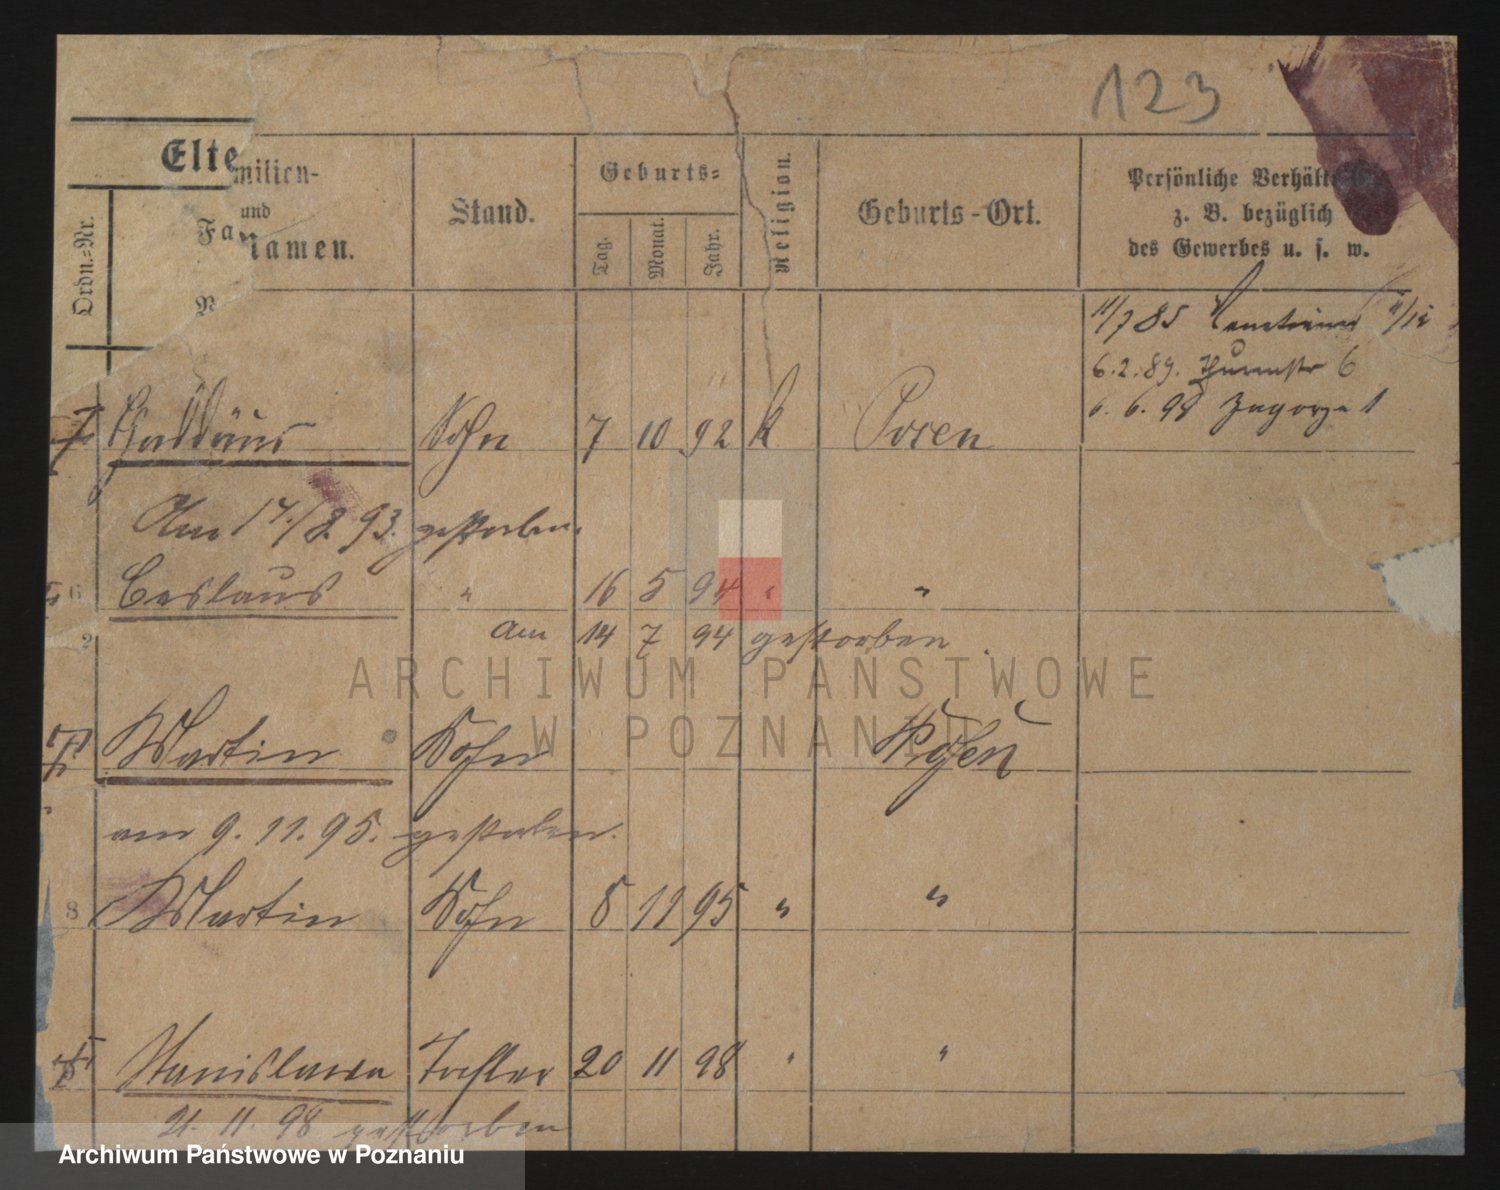 123
Elte
milien-
und
Fa
Namen.
Ordn.-Nr.
Stand.
Geburts-
Tag.
Monat.
Jahr.
Religion.
Geburts-Ort.
Persönliche Verhält
z. B. bezüglich
des Gewerbes u. s. w.
11/7 85
6.2.89. Thurmstr 6
6. 6. 98 Zagorze 1
Thaddäus Sohn 7 10 92 k Posen
Am 17./8. 93. gestorben.
6 Ceslaus " 16 5 94 " "
am 14 7 94 gestorben.
Martin Sohn Posen
am 9. 11. 95. gestorben.
8 Martin Sohn 8 11 95 " "
Stanislawa Tochter 20 11 98 " "
21. 11. 98 gestorben
ARCHIWUM PAŃSTWOWE
W POZNANIU
Archiwum Państwowe w Poznaniu